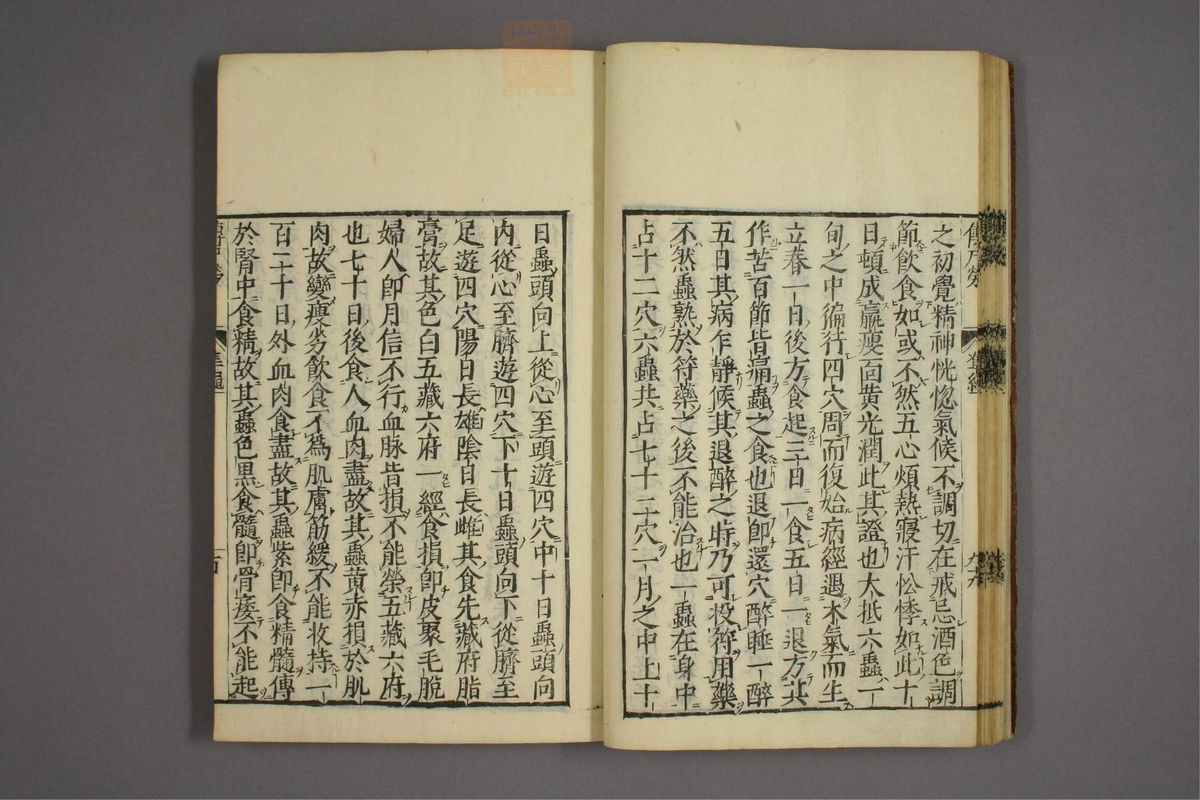 之初覺精神恍惚氣候不調切在戒忌酒色調
節飲食如或不然五心煩熱寢汗忪悸如此十
日頓成羸瘦面黃光潤此其證也太抵六蟲一
旬之中徧行四穴周而復始病經遇木氣而生
立春一日後方食起三日一食五日一退方其
作苦百節皆痛蟲之食也退即還穴醉睡一醉
五日其病乍靜候其退醉之時乃可投符用藥
不然蟲熟於符藥之後不能治也一蟲在身中
占十二穴六蟲共占七十二穴一月之中上十
日蟲頭向上從心至頭遊四穴中十日蟲頭向
內從心至臍遊四穴下十日蟲頭向下從臍至
足遊四穴陽日長雄陰日長雌其食先藏府脂
膏故其色白五藏六府一經食損即皮聚毛脫
婦人即月信不行血脉皆損不能榮五藏六府
也七十日後食人血肉盡故其蟲黃赤損於肌
肉故變瘦劣飲食不爲肌膚筋緩不能收持一
百二十日外血肉食盡故其蟲紫即食精髓傳
於腎中食精故其蟲色黑食髓即骨痿不能起